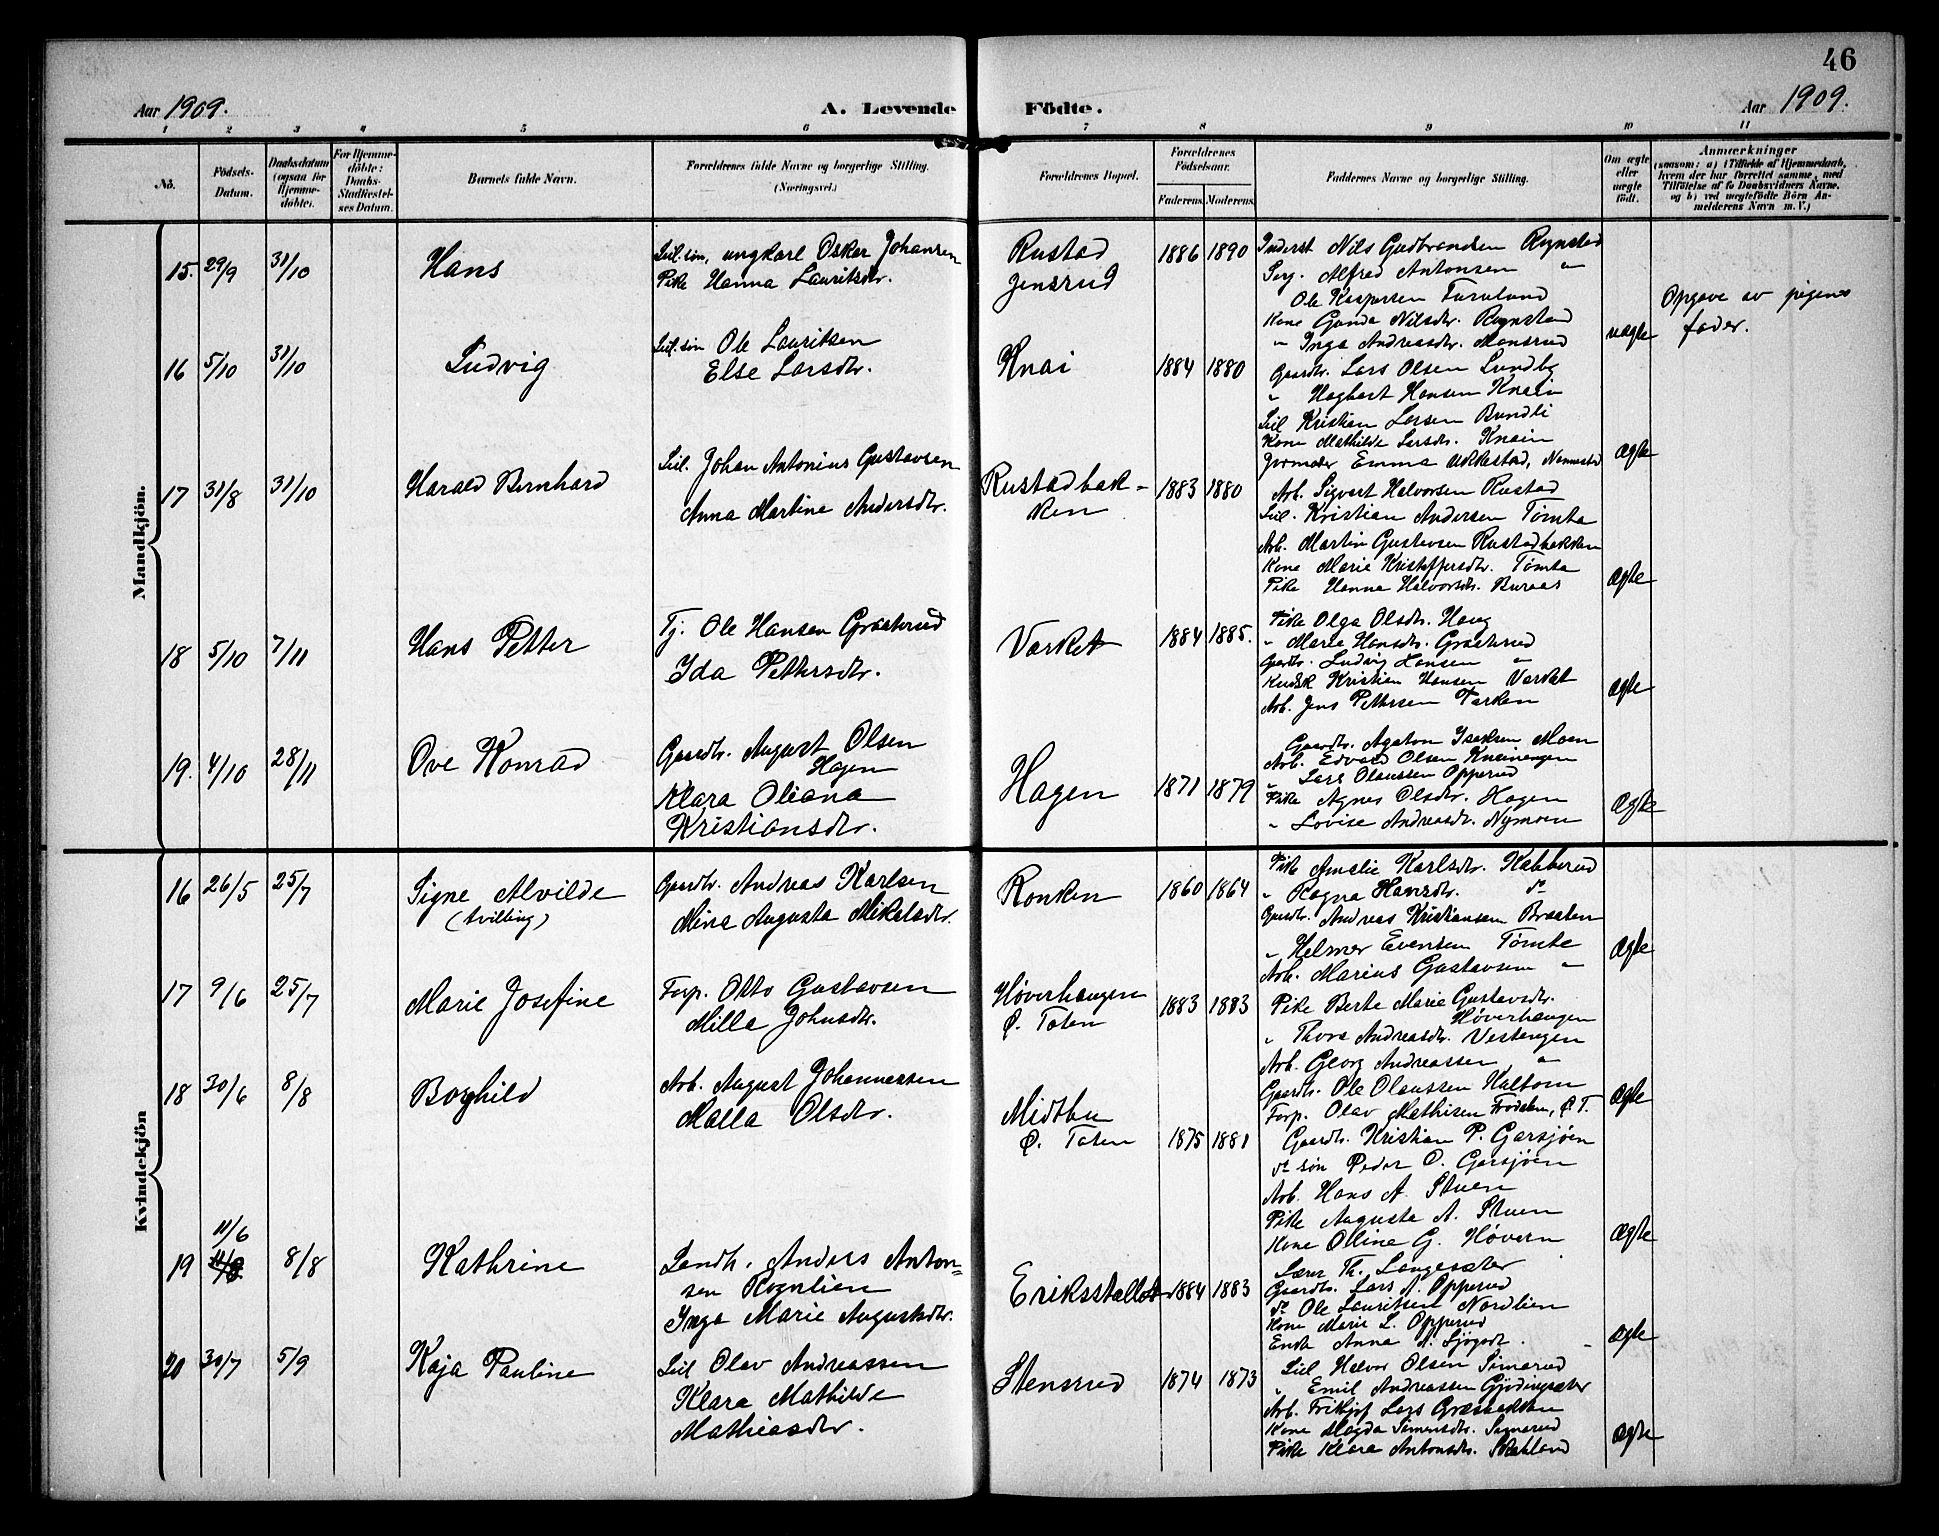 46
Aar 1909.
A. Levende Födte.
Aar 1909.
1 2 3 4 5 6 7 8 9 10 11
No.
Födsels-Datum.
Daabsdatum (ogsaa for Hjemme-döbte).
For Hjemme-döbte: Daabs-Stadfæstel-ses Datum.
Barnets fulde Navn.
Forældrenes fulde Navne og borgerlige Stilling. (Næringsvei.)
Forældrenes Bopæl.
Forældrenes Födselsaar.
Faderens. Moderens.
Faddernes Navne og borgerlige Stilling.
Om ægte eller uægte födt.
Anmærkninger
(saasom: a) i Tilfælde af Hjemmedaab, hvem der har forrettet samme, med Tilföielse af to Daabsvidners Navne, og b) ved uægtefödte Börn An-melderens Navn m. V.)
Mandkjön.
15. 29/9 31/10 Hans
Sul. søn, ungkarl Oskar Johansen
Pike Hanna Lauritsdtr.
Rustad
Jensrud
1886 1890
Inderst Nils Gudbrandsen Rognstad
Serg. Alfred Antonsen "
Ole Kaspersen Furulund
Kone Gunda Nilsdtr. Rognstad
" Inga Andreasdtr. Monsrud
uægte
Opgave av pigens
fader.
16 5/10 31/10 Ludvig
Sul. søn Ole Lauritsen
Else Larsdtr.
Knai
1884 1880
Gaardbr. Lars Olsen Lundby
" Hagbart Hansen Knain
Sul Kristian Larsen Bundli
Kone Mathilde Larsdtr. Knain
Jormoder Emma Ukkestad,
ægte
17 31/8 31/10 Harald Bernhard
Sul. Johan Antonius Gustavsen
Anna Martine Andersdtr.
Rustadbak-
ken
1883 1880
Arb. Sigvart Halvorsen Rustad
Sul. Kristian Andersen Tømte
Arb. Martin Gustavsen Rustadbakken
Kone Marie Kristoffersdtr. Tømte
Pike Hanna Halvorsdtr. Buraas
ægte
18 5/10 7/11 Hans Petter
Tj. Ole Hansen Graaterud
Ida Pettersdtr.
Værket
1884 1885.
Pike Olga Olsdtr. Haug
" Marie Hansdtr. Graaterud
Gaardbr. Ludvig Hansen "
Kudsk Kristian Hansen Værket
Arb. Jens Pettersen Parken
ægte
19. 4/10 28/11 Ove Konrad
Gaardbr. August Olsen
Hagen
Klara Oliana
Kristiansdtr.
Hagen
1871 1879
Gaardbr. Agaton Isaksen Moen
Arb. Edvard Olsen Knaiengen
" Lars Olaussen Opperud
Pike Agnes Olsdtr. Hagen
" Lovise Andreasdtr. Nymoen
Ægte
Kvindekjön
16 26/5 25/7 Signe Alvilde
(tvilling)
Gaardbr. Andreas Karlsen
Mina Augusta Mikelsdtr.
Ronken
1860 1864
Pike Amalie Karlsdtr. Kabberud
" Ragna Hansdtr. do
Gaardbr. Andreas Kristiansen Braaten
" Helmer Evensen Tømte
Arb. Marius Gustavsen "
Ægte
17 9/6 25/7 Marie Josefine
Forp. Otto Gustavsen
Milla Johnsdtr.
Høverhaugen
Ø. Toten
1883 1883
Pike Berte Marie Gustavsdtr.
Høverhaugen
" Thora Andreasdtr. Vestengen
Arb. Georg Andreassen "
Gaardbr. Ole Olaussen Halbom
Forp. Olav Mathisen ø T.
Ægte
18 30/6 8/8 Borghild
Arb. August Johannessen
Malla Olsdtr.
Midtbu
Ø. Toten
1875 1881
Gaardbr. Kristian P. Garsjøen
ds søn Peder O. Garsjøen
Arb. Hans A. Stuen
Pike Augusta A. Stuen
Kone Oline G. Høvern
Ægte
11/6
19 11/8 8/8 Kathrine
Landh. Anders Anton=
sen Rognlien
Inga Marie Augustsdtr.
Eriksstallet
1884 1883
Lærer Th. Langesæter
Gaardbr. Lars A. Opperud
do Ole Lauritsen Nordlien
Kone Marie L. Opperud
Enke Anna A.
Ægte
20 30/7 5/9 Kaja Pauline
Sul Olav Andreassen
Klara Mathilde
Mathiasdtr.
Stensrud
1874 1873
Sul Halvor Olsen Simarud
" Emil Andreassen
Arb. Fritjof Lars Græsbakken
Kone Magda Simensdtr. Simarud
Pike Klara Antonsdtr.
Ægte